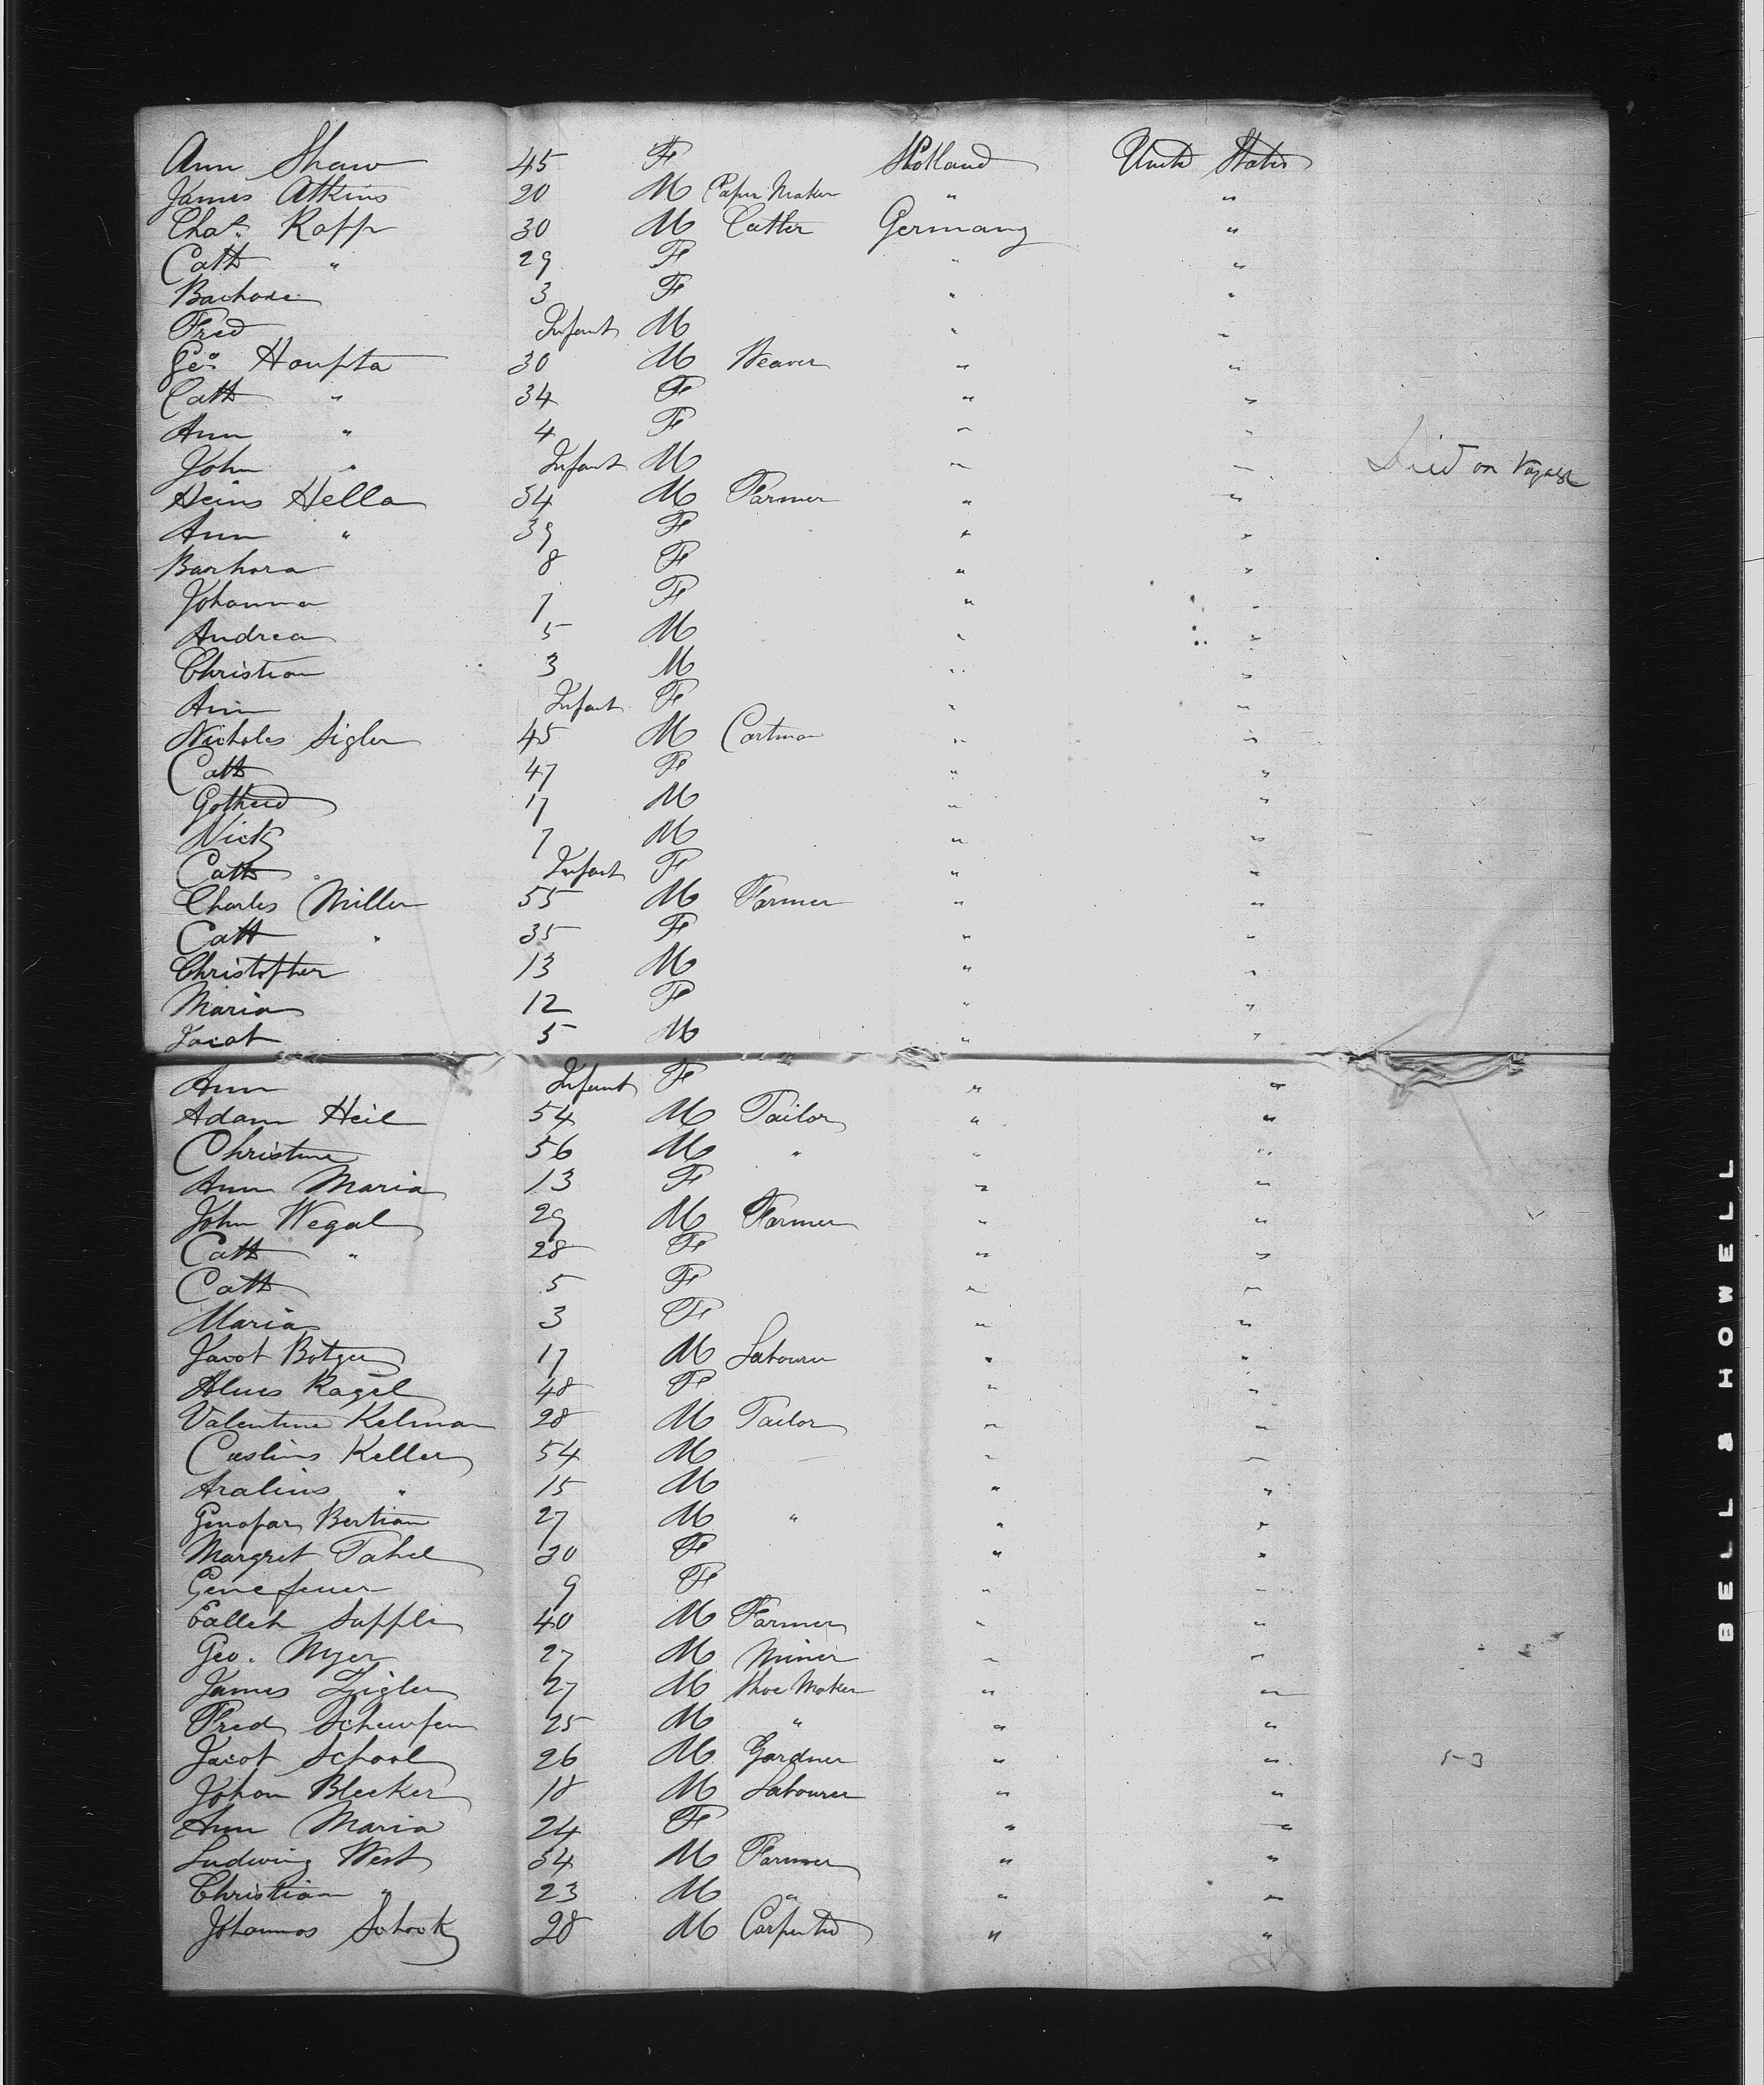 Ann Shaw 45 F Holland United States
James Atkins 20 M Paper Maker " "
Chas. Rapp 30 M Cutler Germany "
Cath " 29 F " "
Barbara 3 F " "
Fred Infant M " "
Geo. Houpta 30 M Weaver " "
Cath " 34 F " "
Ann " 4 F " "
John " Infant M " " Died on Voyage
Heins Hella 34 M Farmer " "
Ann " 39 F " "
Barbara 8 F " "
Johanna 7 F " "
Andrea 5 M " "
Christian 3 M " "
Ann Infant F " "
Nicholes Sigler 45 M Cartman " "
Cath 47 F " "
Gotherd 17 M " "
Nick 7 M " "
Cath Infant F " "
Charles Miller 55 M Farmer " "
Cath " 35 F " "
Christopher 13 M " "
Maria 12 F " "
Jacob 5 M " "
Ann Infant F " "
Adam Heil 54 M Tailor " "
Christine 56 M " " "
Ann Maria 13 F " "
John Wegal 29 M Farmer " "
Cath " 28 F " "
Cath 5 F " "
Maria 3 F " "
Jacob Botger 17 M Labourer " "
Ragel 48 F " "
Valentine Kelman 28 M Tailor " "
Keller 54 M " "
Aralius " 15 M " "
Bertian 27 M " " "
Margret Tahel 30 F " "
Genefeuer 9 F " "
Suppli 40 M Farmer " "
Geo. Myer 27 M Miner " "
James Zigler 27 M Shoe Maker " "
Fred Scheurfen 25 M " " "
Jacob School 26 M Gardner " " 53
Johan Blecker 18 M Labourer " "
Ann Maria 24 F " "
Ludwing West 54 M Farmer " "
Christian " 23 M " " "
Johannas Schock 28 M Carpenter " "
BELL & HOWELL